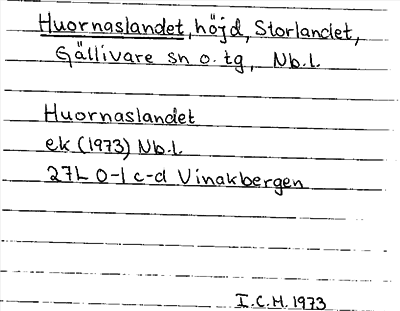 Huornaslandet, höjd, Storlandet,
Gällivare sn o. tg, Nb.l.
Huornaslandet
ek (1973) Nb.l.
27L 0-1 c-d Vinakbergen
I.C.H. 1973